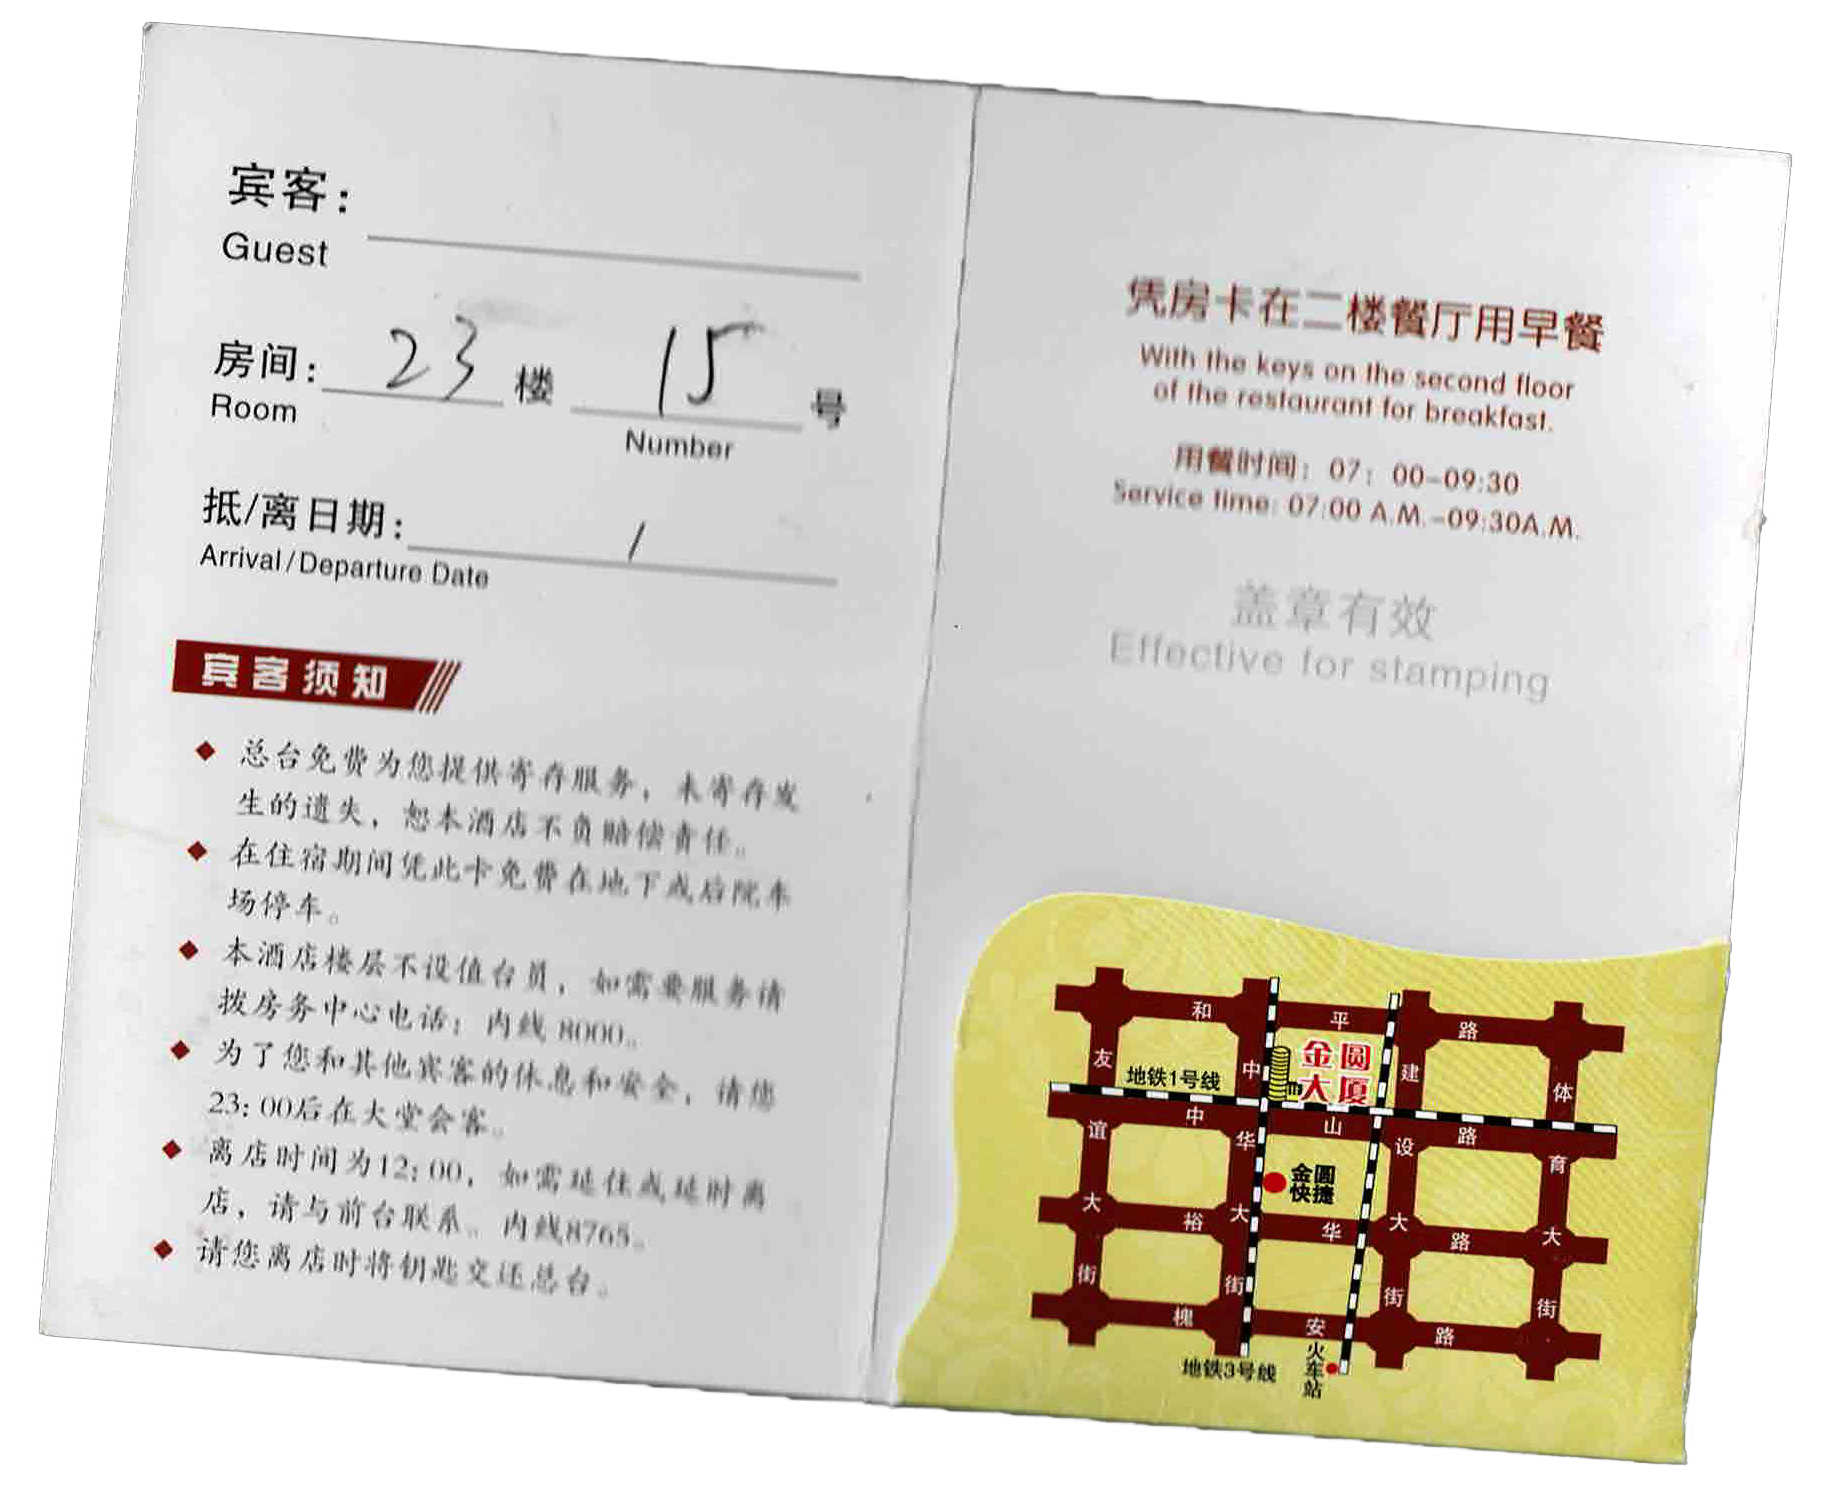 宾客：
Guest
房间： 23 楼 15 号
Room
Number
抵/离日期： /
Arrival/Departure Date
宾客须知
总台免费为您提供寄存服务，未寄存发
生的遗失，恕本酒店不负赔偿责任。
在住宿期间凭此卡免费在地下或后院车
场停车。
本酒店楼层不设值台员，如需要服务请
拨房务中心电话：内线 8000。
为了您和其他宾客的休息和安全，请您
23：00后在大堂会客。
离店时间为12：00，如需延住或延时离
店，请与前台联系。内线8765。
请您离店时将钥匙交还总台。
凭房卡在二楼餐厅用早餐
With the keys on the second floor
of the restaurant for breakfast.
用餐时间：07：00-09:30
Service time: 07:00 A.M.-09:30A.M.
盖章有效
Effective for stamping
和平路
金圆
大厦
地铁1号线
中山路
金圆
快捷
裕华路
槐安路
友谊大街
中华大街
建设大街
体育大街
地铁3号线
火车站